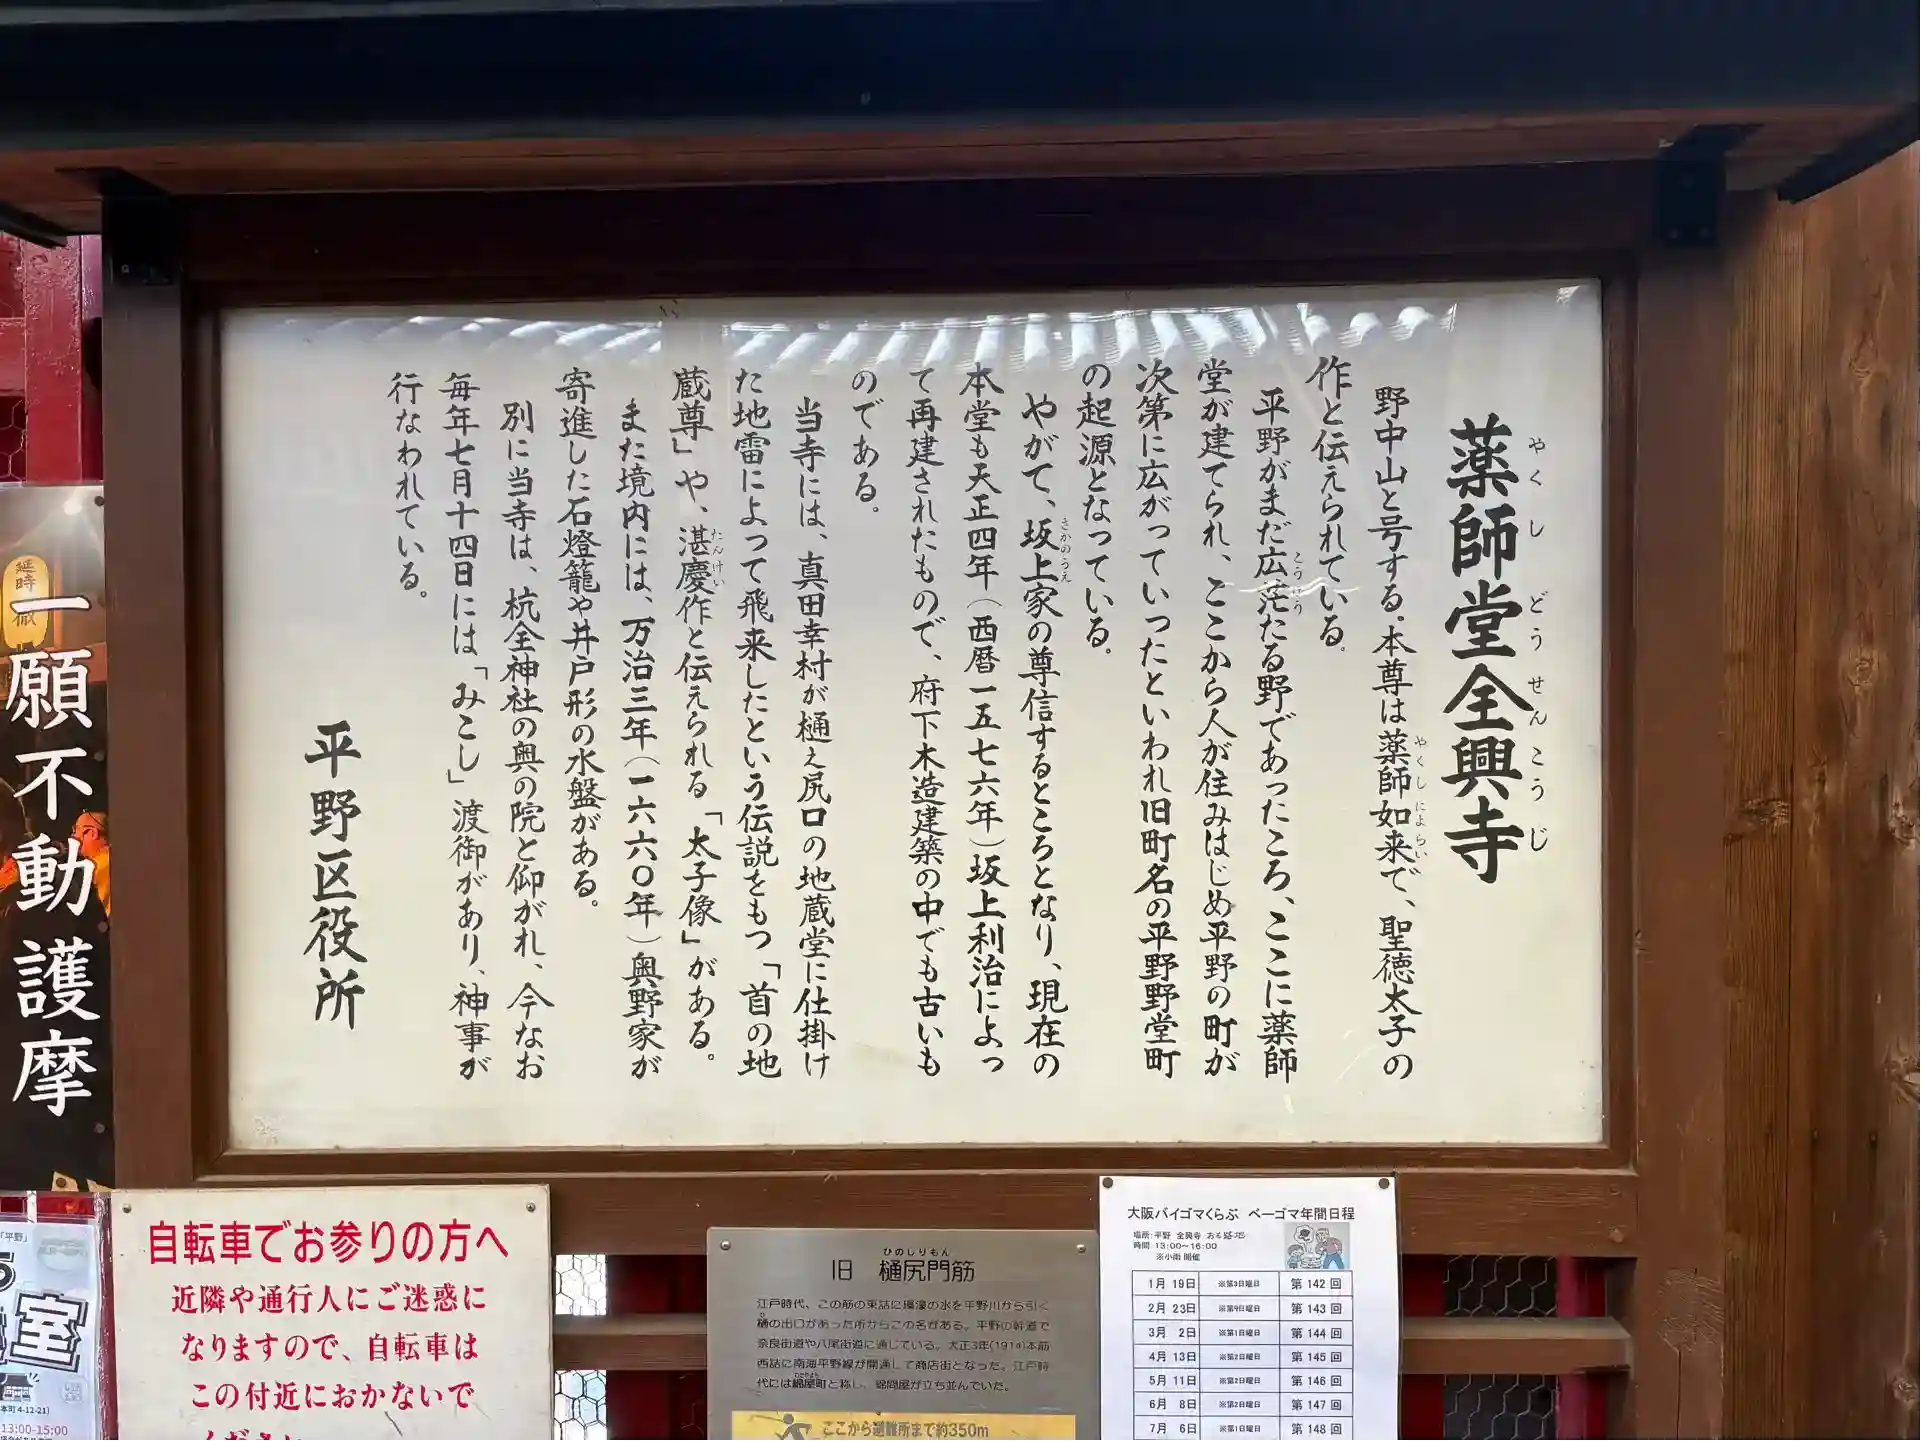 薬師堂全興寺
やくしどうせんこうじ
野中山と号する。本尊は薬師如来で、聖徳太子の
やくしによらい
作と伝えられている。
平野がまだ広茫たる野であったころ、ここに薬師
堂が建てられ、ここから人が住みはじめ平野の町が
次第に広がっていったといわれ旧町名の平野野堂町
の起源となっている。
やがて、坂上家の尊信するところとなり、現在の
さかのうえ
本堂も天正四年(西暦一五七六年)坂上利治によっ
て再建されたもので、府下木造建築の中でも古いも
のである。
当寺には、真田幸村が樋え尻口の地蔵堂に仕掛け
た地雷によって飛来したという伝説をもつ「首の地
蔵尊」や、湛慶作と伝えられる「太子像」がある。
たんけい
また境内には、万治三年(一六六〇年)奥野家が
寄進した石燈籠や井戸形の水盤がある。
別に当寺は、杭全神社の奥の院と仰がれ、今なお
毎年七月十四日には「みこし」渡御があり、神事が
行なわれている。
平野区役所
一願不動護摩
自転車でお参りの方へ
近隣や通行人にご迷惑に
なりますので、自転車は
この付近におかないで
ひのしりもん
旧 樋尻門筋
江戸時代、この筋の東詰に環濠の水を平野川から引く
樋の出口があった所からこの名がある。平野の幹道で
奈良街道や八尾街道に通じている。大正3年(1914)本筋
西詰に南海平野線が開通して商店街となった。江戸時
代には綿屋町と称し、綿問屋が立ち並んでいた。
ここから避難所まで約350m
大阪バイゴマくらぶ ベーゴマ年間日程
場所:平野 全興寺 おも路地
時間:13:00～16:00
※小雨 開催
1月 19日 ※第3日曜日 第 142 回
2月 23日 ※第4日曜日 第 143 回
3月 2日 ※第1日曜日 第 144 回
4月 13日 ※第2日曜日 第 145 回
5月 11日 ※第2日曜日 第 146 回
6月 8日 ※第2日曜日 第 147 回
7月 6日 ※第1日曜日 第 148 回
「平野」
室
本町4-12-21)
13:00-15:00